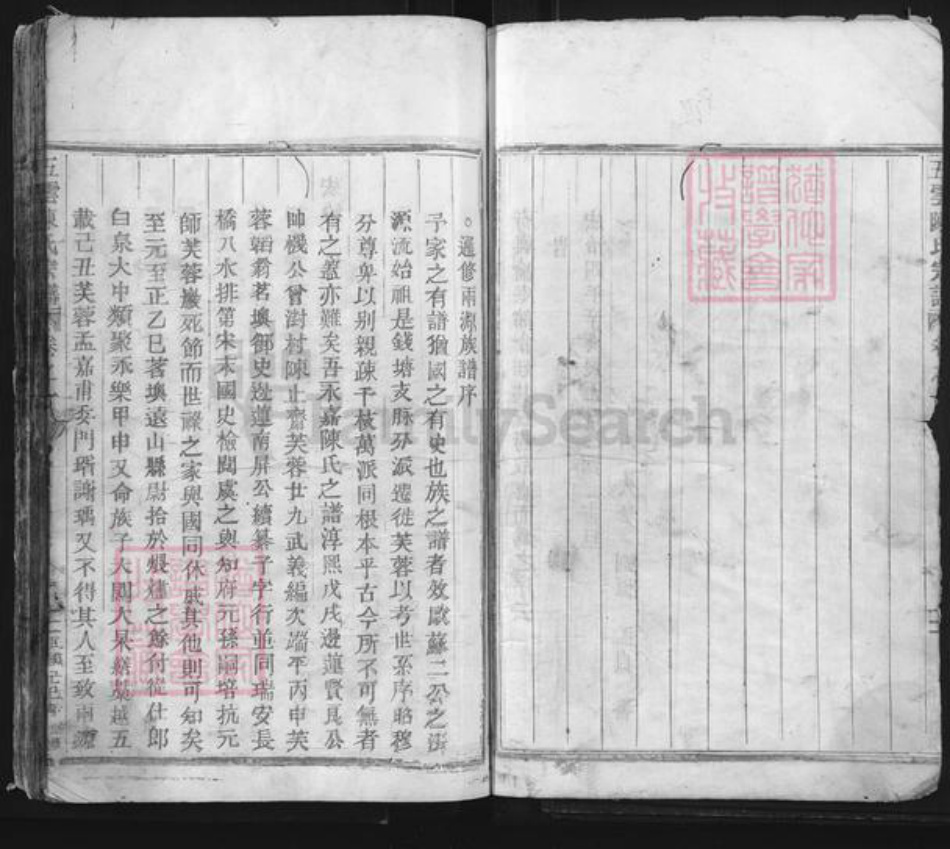 五雲陳氏宗譜
遁修兩源族譜序
予家之有譜猶國之有史也族之譜者效歐蘇二公之
源流始祖是錢塘支脉分派遷徙芙蓉以考世系序昭穆
分尊卑以别親疎千枝萬派同根本乎古今所不可無者
有之蓋亦難矣吾永嘉陳氏之譜淳熙戊戌邊蓮賢良公
帥機公曾澍村陳止齋芙蓉廿九武義編次端平丙申芙
蓉 翁茗墺御史 蓮南屏公續纂子字行並同瑞安長
橋八水排第宋末國史檢閱虞之與知府元孫嗣培抗元
師芙蓉巖死節而世祿之家與國同休戚其他則可知矣
至元至正乙巳茗墺遠山縣尉拾於煨燼之餘付從仕郎
白泉大中類聚永樂甲申又命族子大 大杲 越五
載己丑芙蓉孟嘉甫委門壻謝瑀又不得其人至致兩源
五雲陳氏宗譜
FamilySearch
譜學會
收藏